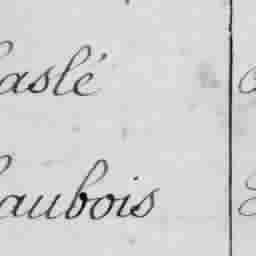 aslé
aubois